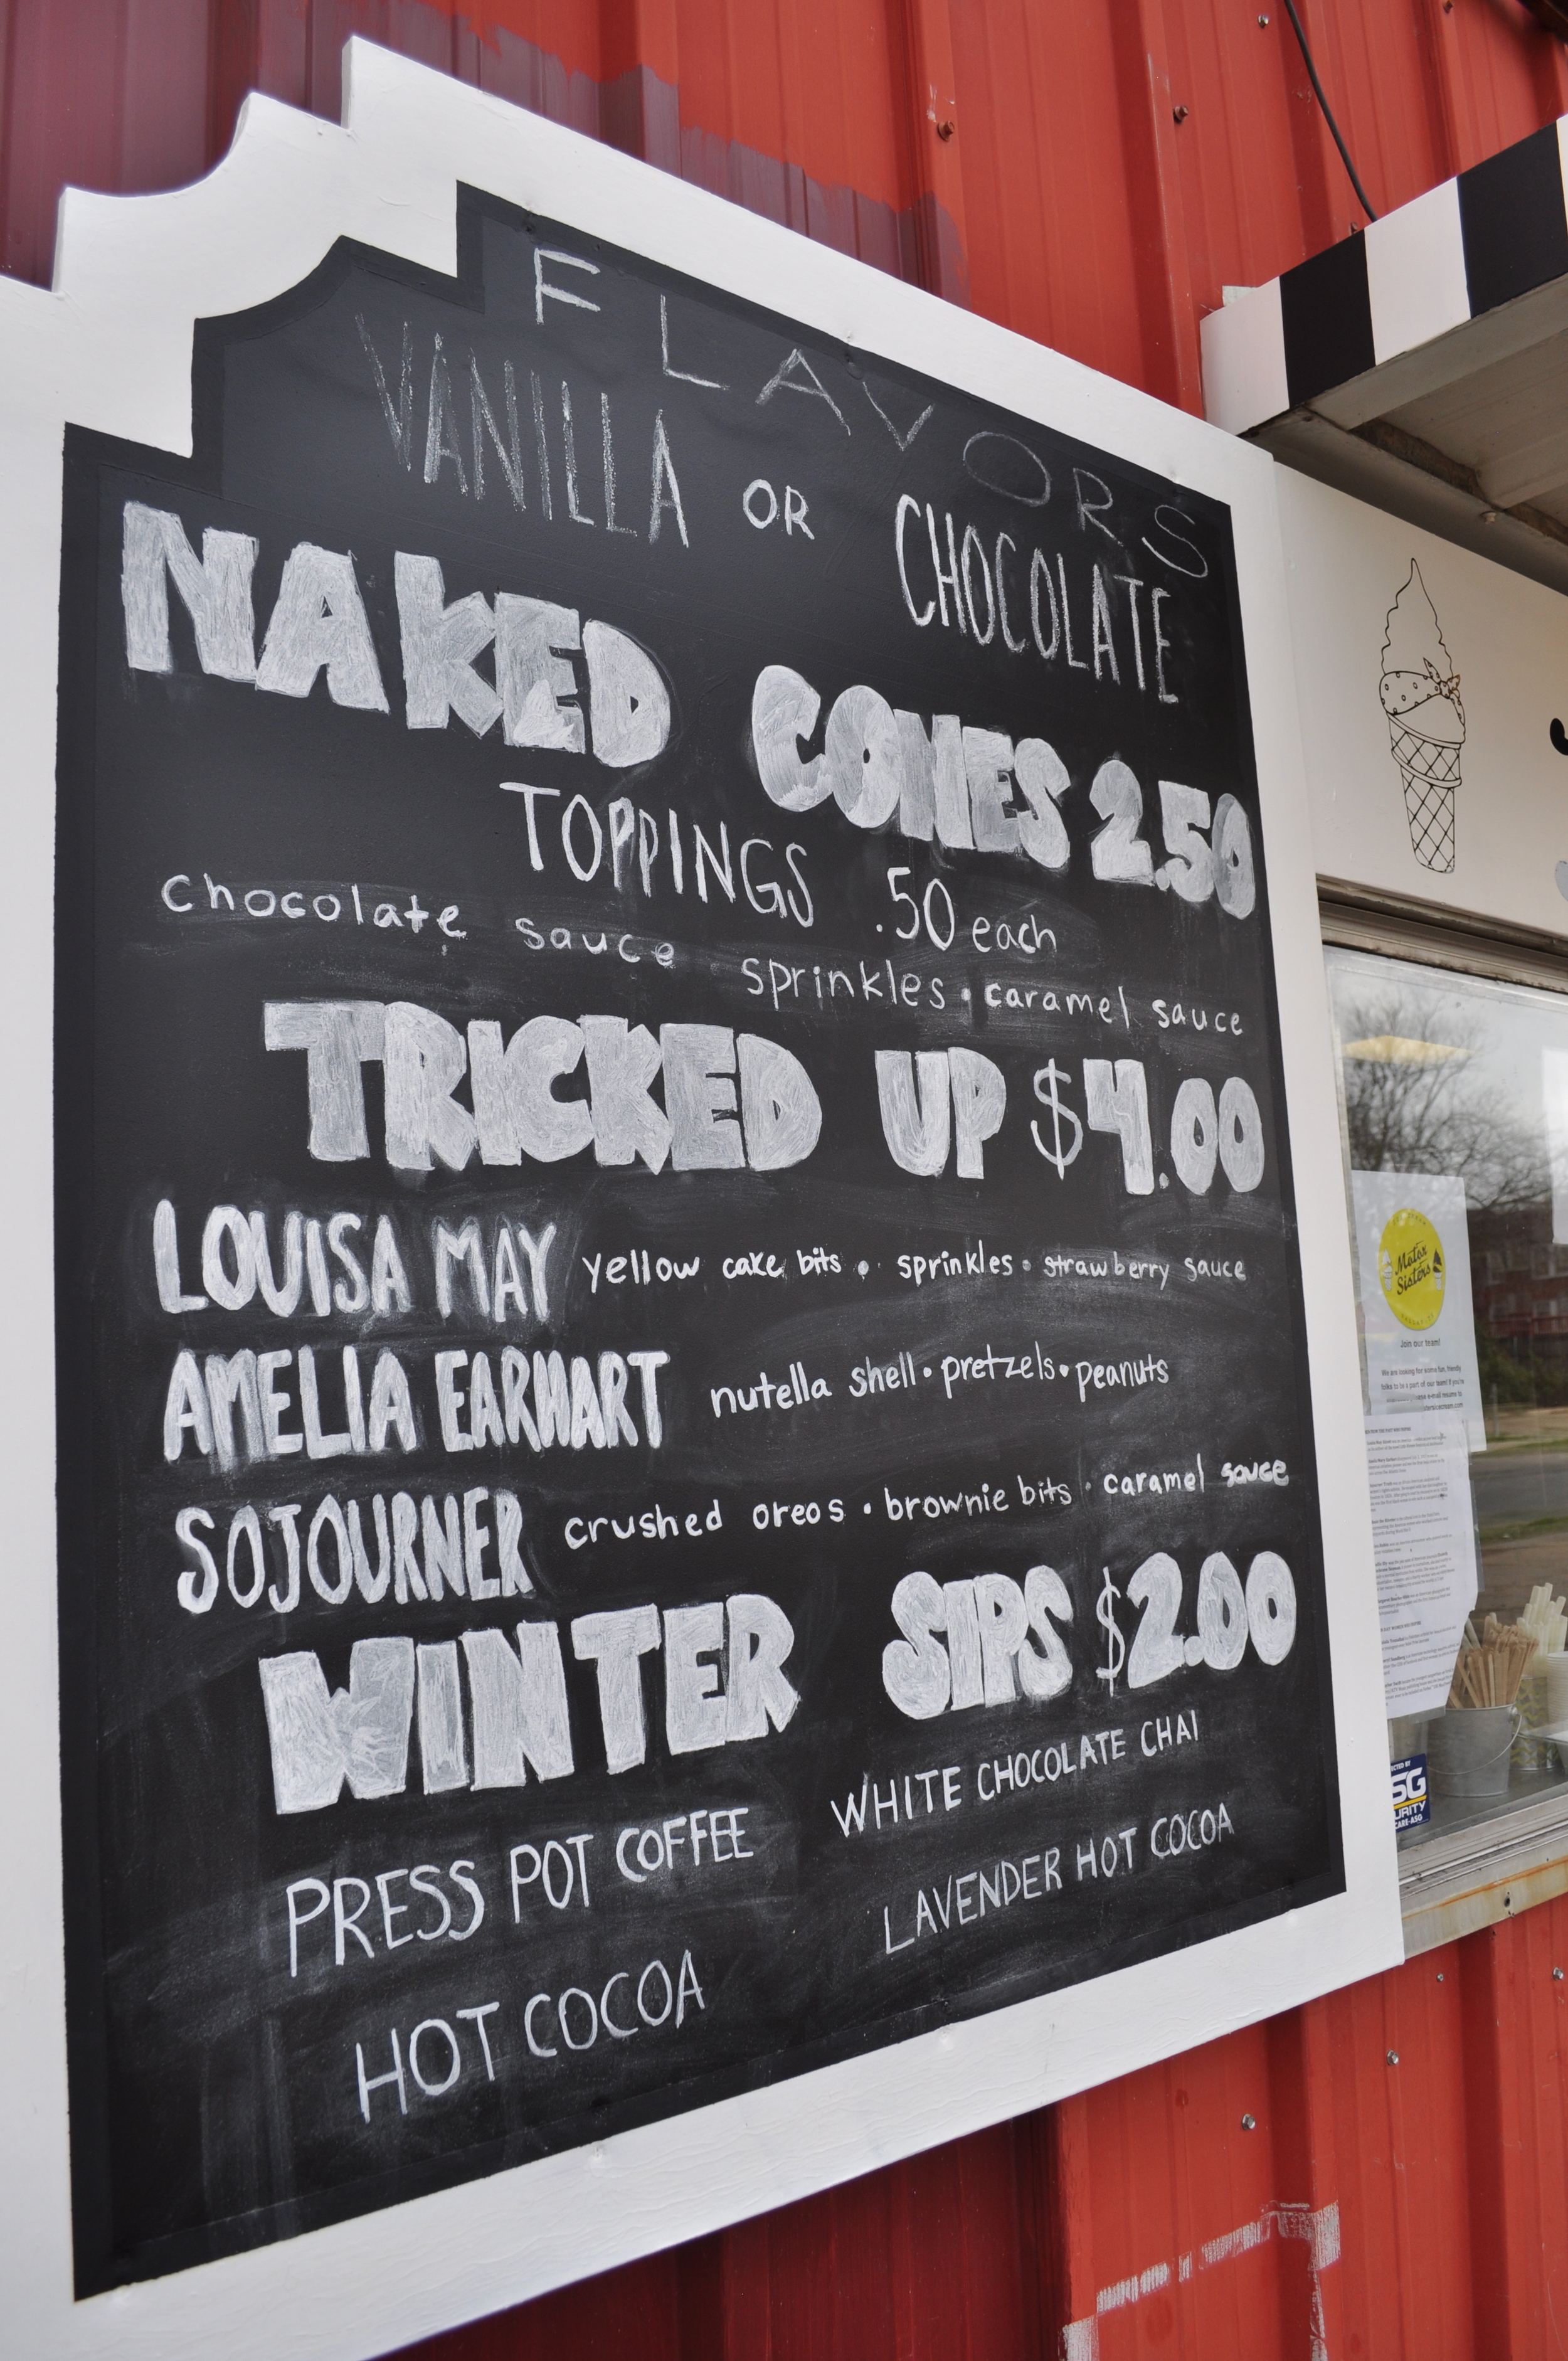 FLAVORS
VANILLA OR CHOCOLATE
NAKED CONES 2.50
TOPPINGS .50 each
chocolate sauce · sprinkles · caramel sauce
TRICKED UP $4.00
LOUISA MAY yellow cake bits · sprinkles · strawberry sauce
AMELIA EARHART nutella shell · pretzels · peanuts
SOJOURNER crushed oreos · brownie bits · caramel sauce
WINTER SIPS $2.00
PRESS POT COFFEE
WHITE CHOCOLATE CHAI
HOT COCOA
LAVENDER HOT COCOA
Motor
Sisters
Join our team!
We are looking for some fun, friendly
folks to be a part of our team! If you're
e-mail resume to
SG
URITY